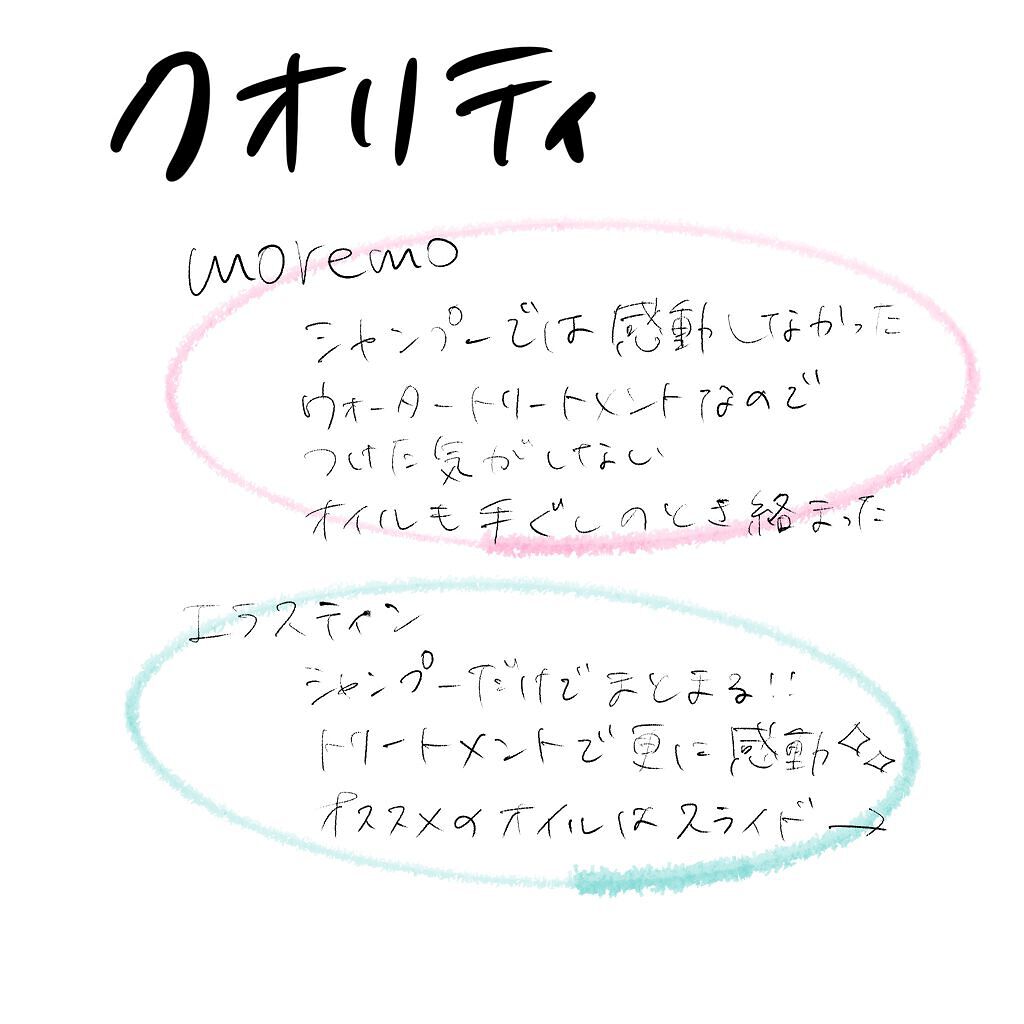 クオリティ
moremo
シャンプーでは感動しなかった
ウォータートリートメントなので
つけた気がしない
オイルも手ぐしのとき絡まった
エラスティン
シャンプーだけでまとまる!!
トリートメントで更に感動✧✧
オススメのオイルはスライド→